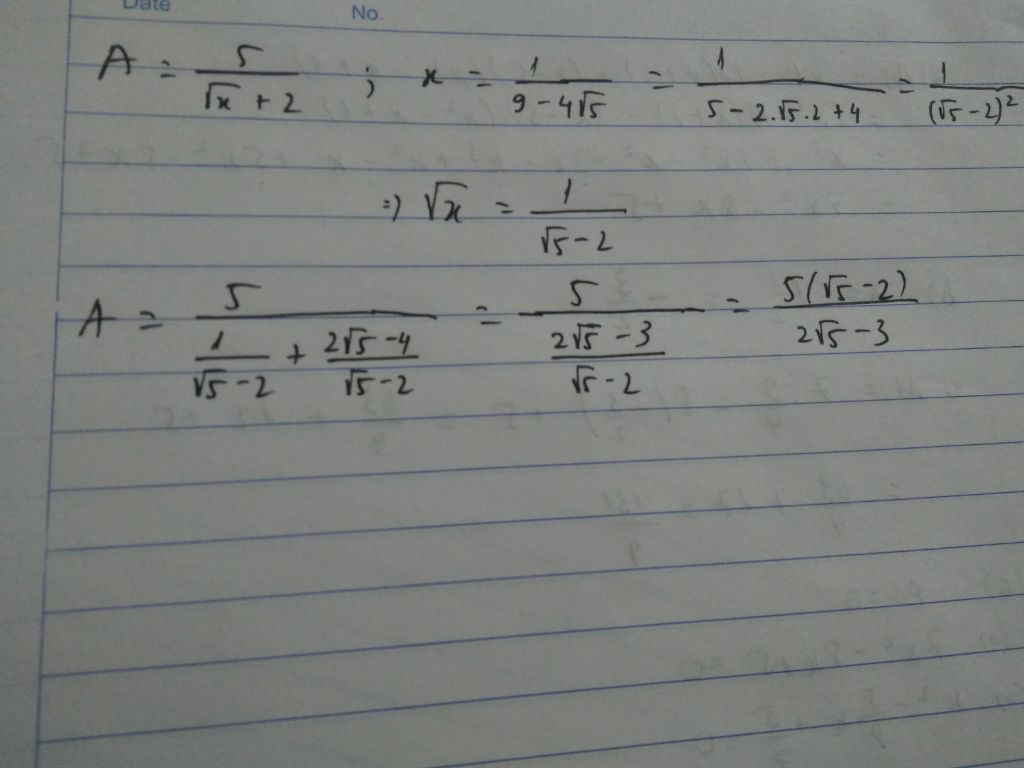 Date No.
A = 5/(√x + 2) ; x = 1/(9 - 4√5) = 1/(5 - 2.√5.2 + 4) = 1/(√5 - 2)²
=) √x = 1/(√5 - 2)
A = 5/(1/(√5 - 2) + (2√5 - 4)/(√5 - 2)) = 5/((2√5 - 3)/(√5 - 2)) = 5(√5 - 2)/(2√5 - 3)